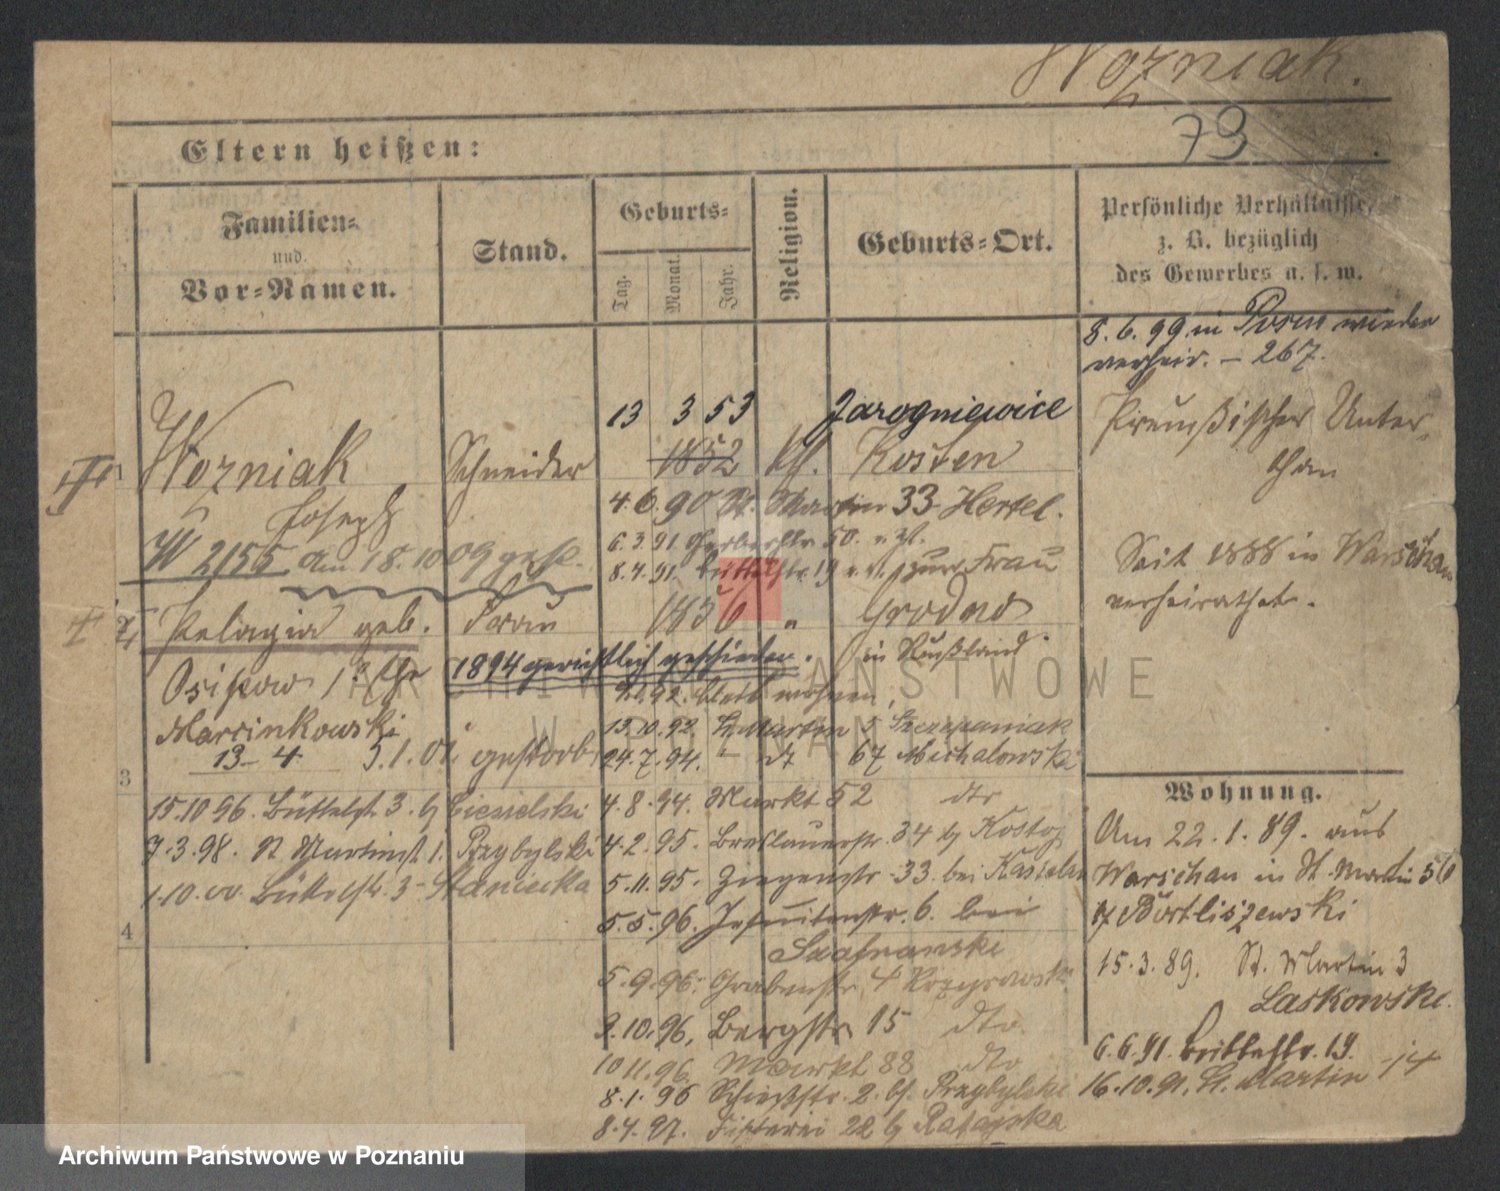 Wozniak.
79
Eltern heißen:
Familien=
und
Vor=Namen.
Stand.
Geburts=
Tag.
Monat.
Jahr.
Religion.
Geburts=Ort.
Persönliche Verhältnisse,
z. B. bezüglich
des Gewerbes u. s. w.
8. 6. 99 in Posen wieder
verheir. – 267.
13 3 53 Jarogniewice
Wozniak Schneider 1852 kth. Kosten
Joseph
Preußischer Unter-
than
4. 6. 90 St. Martin 33 Hertel.
W 2155 am 18. 10 09
6. 3. 91. Gerberstr. 50.
8. 4. 91. Büttelstr. 19 zur Frau
Seit 1888 in Warschau
verheirathet.
2, Pelagia geb. Frau 1856 " Grodno
in Rußland.
Osipow 1894 gerichtlich geschieden.
Marcinkowski
13 – 4 5. 1. 01. gestorb.
15. 10. 92. St. Martin 5 Szczepaniak
24. 7. 94. – dt 67 Michalowski
3
15. 10 96. Büttelst. 3. b Ciesielski
7. 3. 98. St Martinst 1. Przybylski
1. 10. 00. Büttelstr. 3 Staniecka
4
4. 8. 94. Markt 52 dto
4. 2. 95. Breslauerstr. 34 b
5. 11. 95. Ziegenstr. 33. bei
5. 5. 96. Jesuitenstr. 6. bei
Szafranski
5. 9. 96. Grabenstr 4
9. 10. 96, Bergstr 15 dto
10 11. 96. Markt 88 dto
8. 1. 96 Schießstr. 2. Przybylski
8. 4. 97. Fischerei 22 b Ratajska
Wohnung.
Am 22. 1. 89. aus
Warschau in St. Martin 56
15. 3. 89. St. Martin 3
Laskowski.
6. 6. 91. Büttelstr. 19.
16. 10. 91. St. Martin
ARCHIWUM PAŃSTWOWE
W POZNANIU
Archiwum Państwowe w Poznaniu